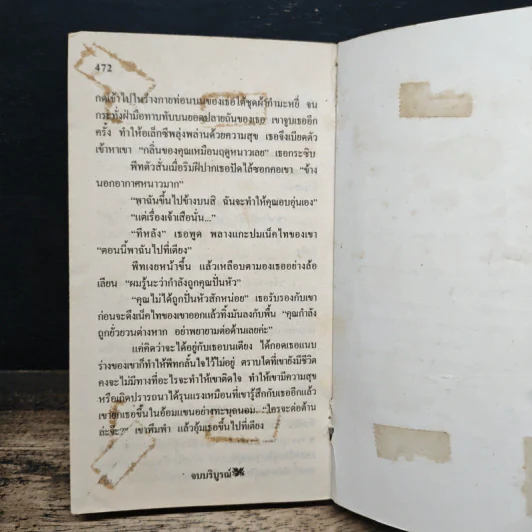 472
กดเข้าไปในร่างกายท่อนบนของเธอใต้ชุดผ้ากำมะหยี่ จน
กระทั่งฝ่ามือทาบทับบนยอดปลายฉันของเธอ เขาจูบเธออีก
ครั้ง ทำให้อเล็กซีพลุ่งพล่านด้วยความสุข เธอจึงเบียดตัว
เข้าหาเขา “กลิ่นของคุณเหมือนฤดูหนาวเลย” เธอกระซิบ
พีทตัวสั่นเมื่อริมฝีปากเธอปัดไล้ซอกคอเขา “ข้าง
นอกอากาศหนาวมาก”
“พาฉันขึ้นไปข้างบนสิ ฉันจะทำให้คุณอบอุ่นเอง”
“แต่เรื่องเจ้าเสือนั่น...”
“ทีหลัง” เธอพูด พลางแกะปมเน็คไทของเขา
“ตอนนี้พาฉันไปที่เตียง”
พีทเงยหน้าขึ้น แล้วเหลือบตามองเธออย่างล้อ
เลียน “ผมรู้นะว่ากำลังถูกคุณปั่นหัว”
“คุณไม่ได้ถูกปั่นหัวสักหน่อย” เธอรับรองกับเขา
ก่อนจะดึงเน็คไทของเขาออกแล้วทิ้งมันลงกับพื้น “คุณกำลัง
ถูกยั่วยวนต่างหาก อย่าพยายามต่อต้านเลยค่ะ”
แค่คิดว่าจะได้อยู่กับเธอบนเตียง ได้กอดเธอแนบ
ร่างของเขาก็ทำให้พีทกลั้นใจไว้ไม่อยู่ ตราบใดที่เขายังมีชีวิต
คงจะไม่มีทางที่อะไรจะทำให้เขาติดใจ ทำให้เขามีความสุข
หรือเกิดปรารถนาได้รุนแรงเหมือนที่เขารู้สึกกับเธออีกแล้ว
เขายกเธอขึ้นในอ้อมแขนอย่างทะนุถนอม “ใครจะต่อต้าน
ล่ะจ๊ะ?” เขาพึมพำ แล้วอุ้มเธอขึ้นไปที่เตียง
จบบริบูรณ์